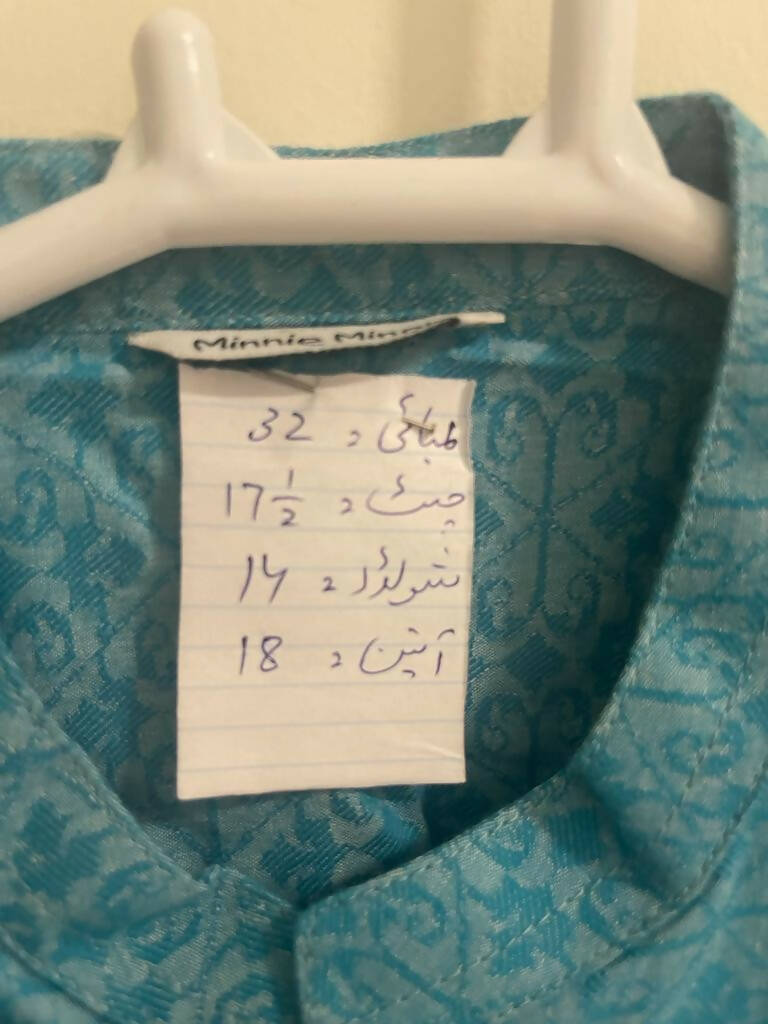 Minnie Min
لمبائی = 32
چسٹ = 17 1/2
شولڈر = 14
آستین = 18